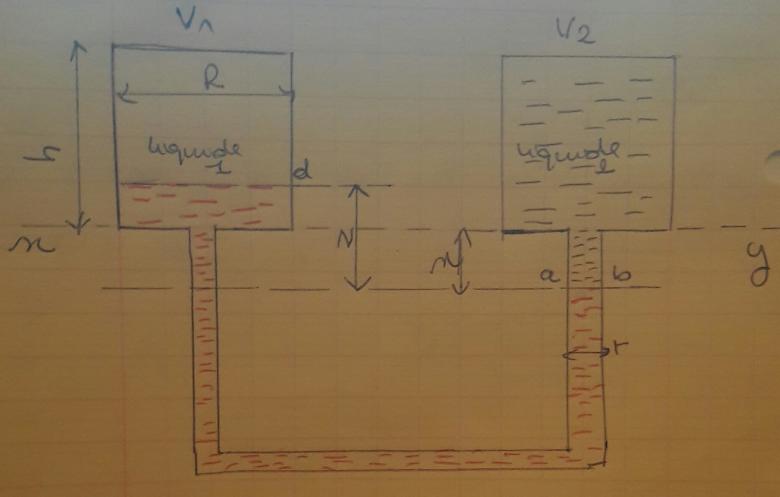 V1
V2
R
h
liquide
1
liquide
2
d
x
N
x
a
b
y
r